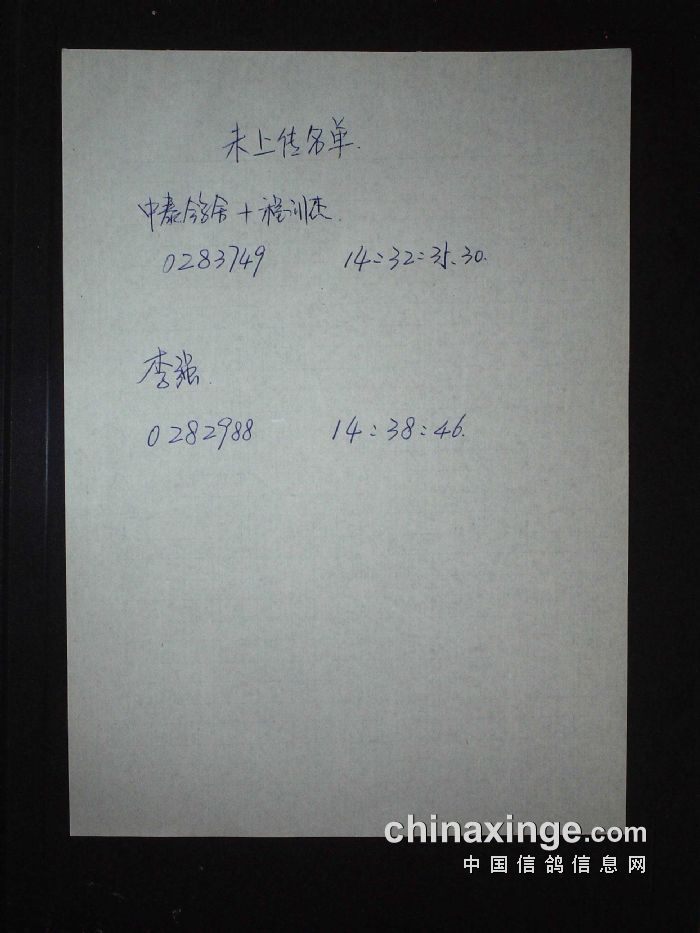 未上传名单.
中泰鸽舍+程训杰.
0283749 14:32:35.30.
李强.
0282988 14:38:46.
chinaxinge.com
中国信鸽信息网